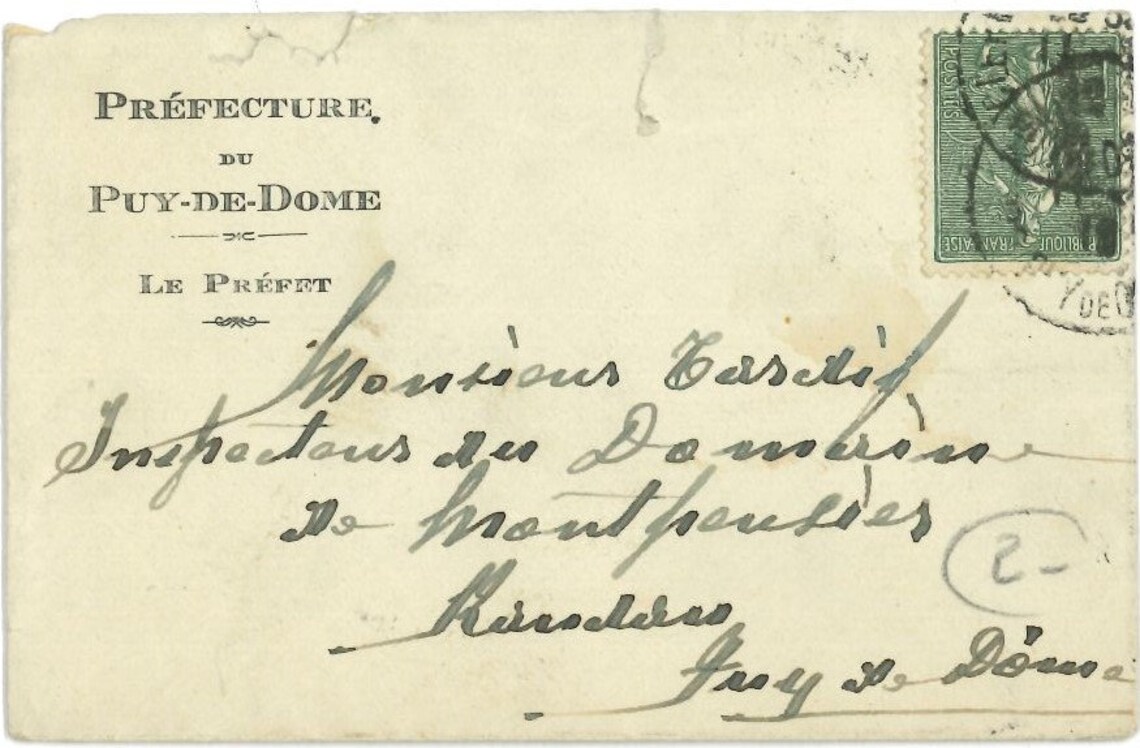 PRÉFECTURE
DU
PUY-DE-DOME
LE PRÉFET
POSTES
RÉPUBLIQUE FRANÇAISE
Y DE D
Monsieur Tardif
Inspecteur du Domaine
de Montpensier
Randan
Puy de Dôme
2-